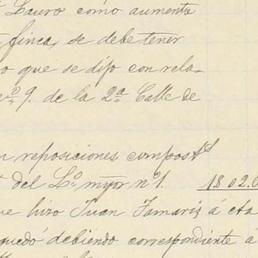 Lauro como aumento
finca, se debe tener
o que se dijo con rela-
nº 9. de la 2ª Calle de
n reposiciones compostˢ
del Lº mayor nº 1. 1802.0
ue hizo Juan Tamariz á cta
quedó debiendo correspondiente á